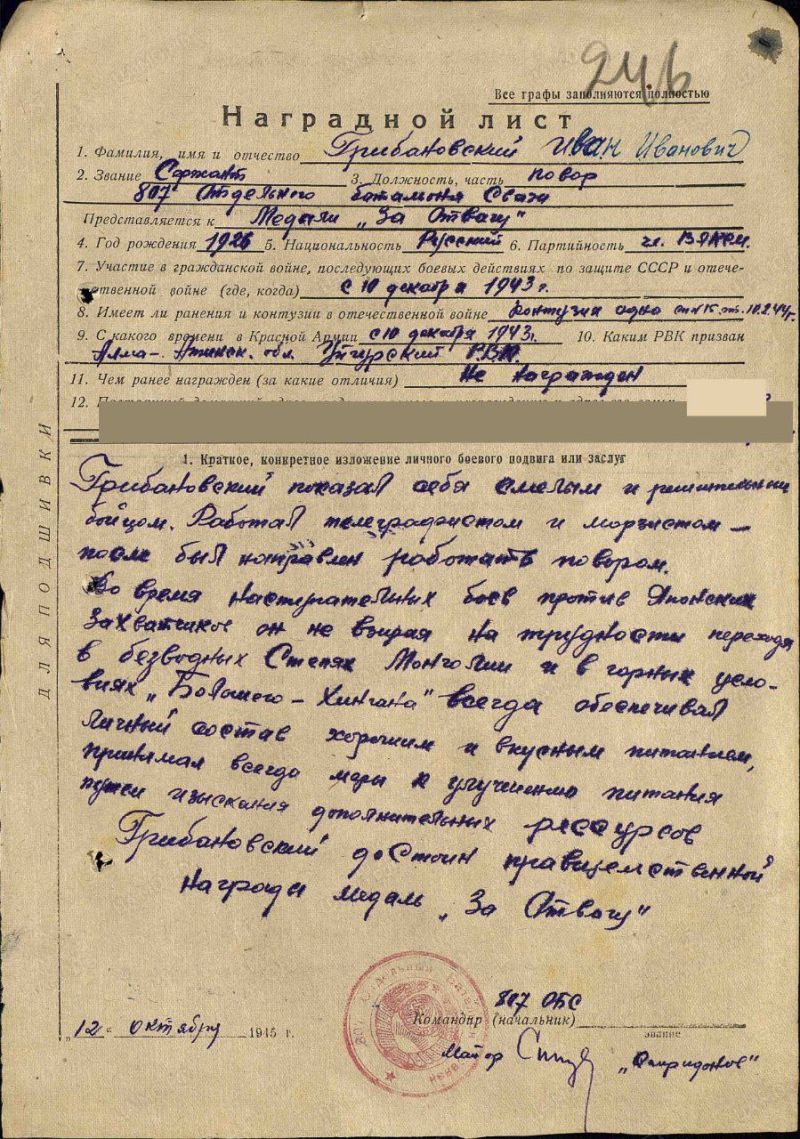 246
Все графы заполняются полностью
Наградной лист
1. Фамилия, имя и отчество Грибановский Иван Иванович
2. Звание Сержант 3. Должность, часть повор
807 Отдельного батальона Связи
Представляется к Медали „За Отвагу"
4. Год рождения 1926 5. Национальность Русский 6. Партийность чл. ВЛКСМ.
7. Участие в гражданской войне, последующих боевых действиях по защите СССР и отече-
ственной войне (где, когда) с 10 декабря 1943 г.
8. Имеет ли ранения и контузии в отечественной войне Контузия одна 10.2.44г.
9. С какого времени в Красной Армии с 10 декабря 1943г. 10. Каким РВК призван
Алма-Атинск. обл. Уйгурский РВК.
11. Чем ранее награжден (за какие отличия) Не награжден
12.
1. Краткое, конкретное изложение личного боевого подвига или заслуг
Грибановский показал себя смелым и решительным
бойцом. Работал телеграфистом и морзистом —
после был направлен работать поваром.
Во время наступательных боев против Японских
Захватчиков он не взирая на трудности перехода
в безводных Степях Монголии и в горных усло-
виях „Большого-Хингана" всегда обеспечивал
личный состав хорошим и вкусным питанием,
принимал всегда меры к улучшению питания
путем изыскания дополнительных ресурсов
Грибановский достоин правительственной
награды медаль „За Отвагу"
807 ОБС
Командир (начальник)
звание
„12" октября 1945 г.
Майор „Спиридонов"
ДЛЯ ПОДШИВКИ